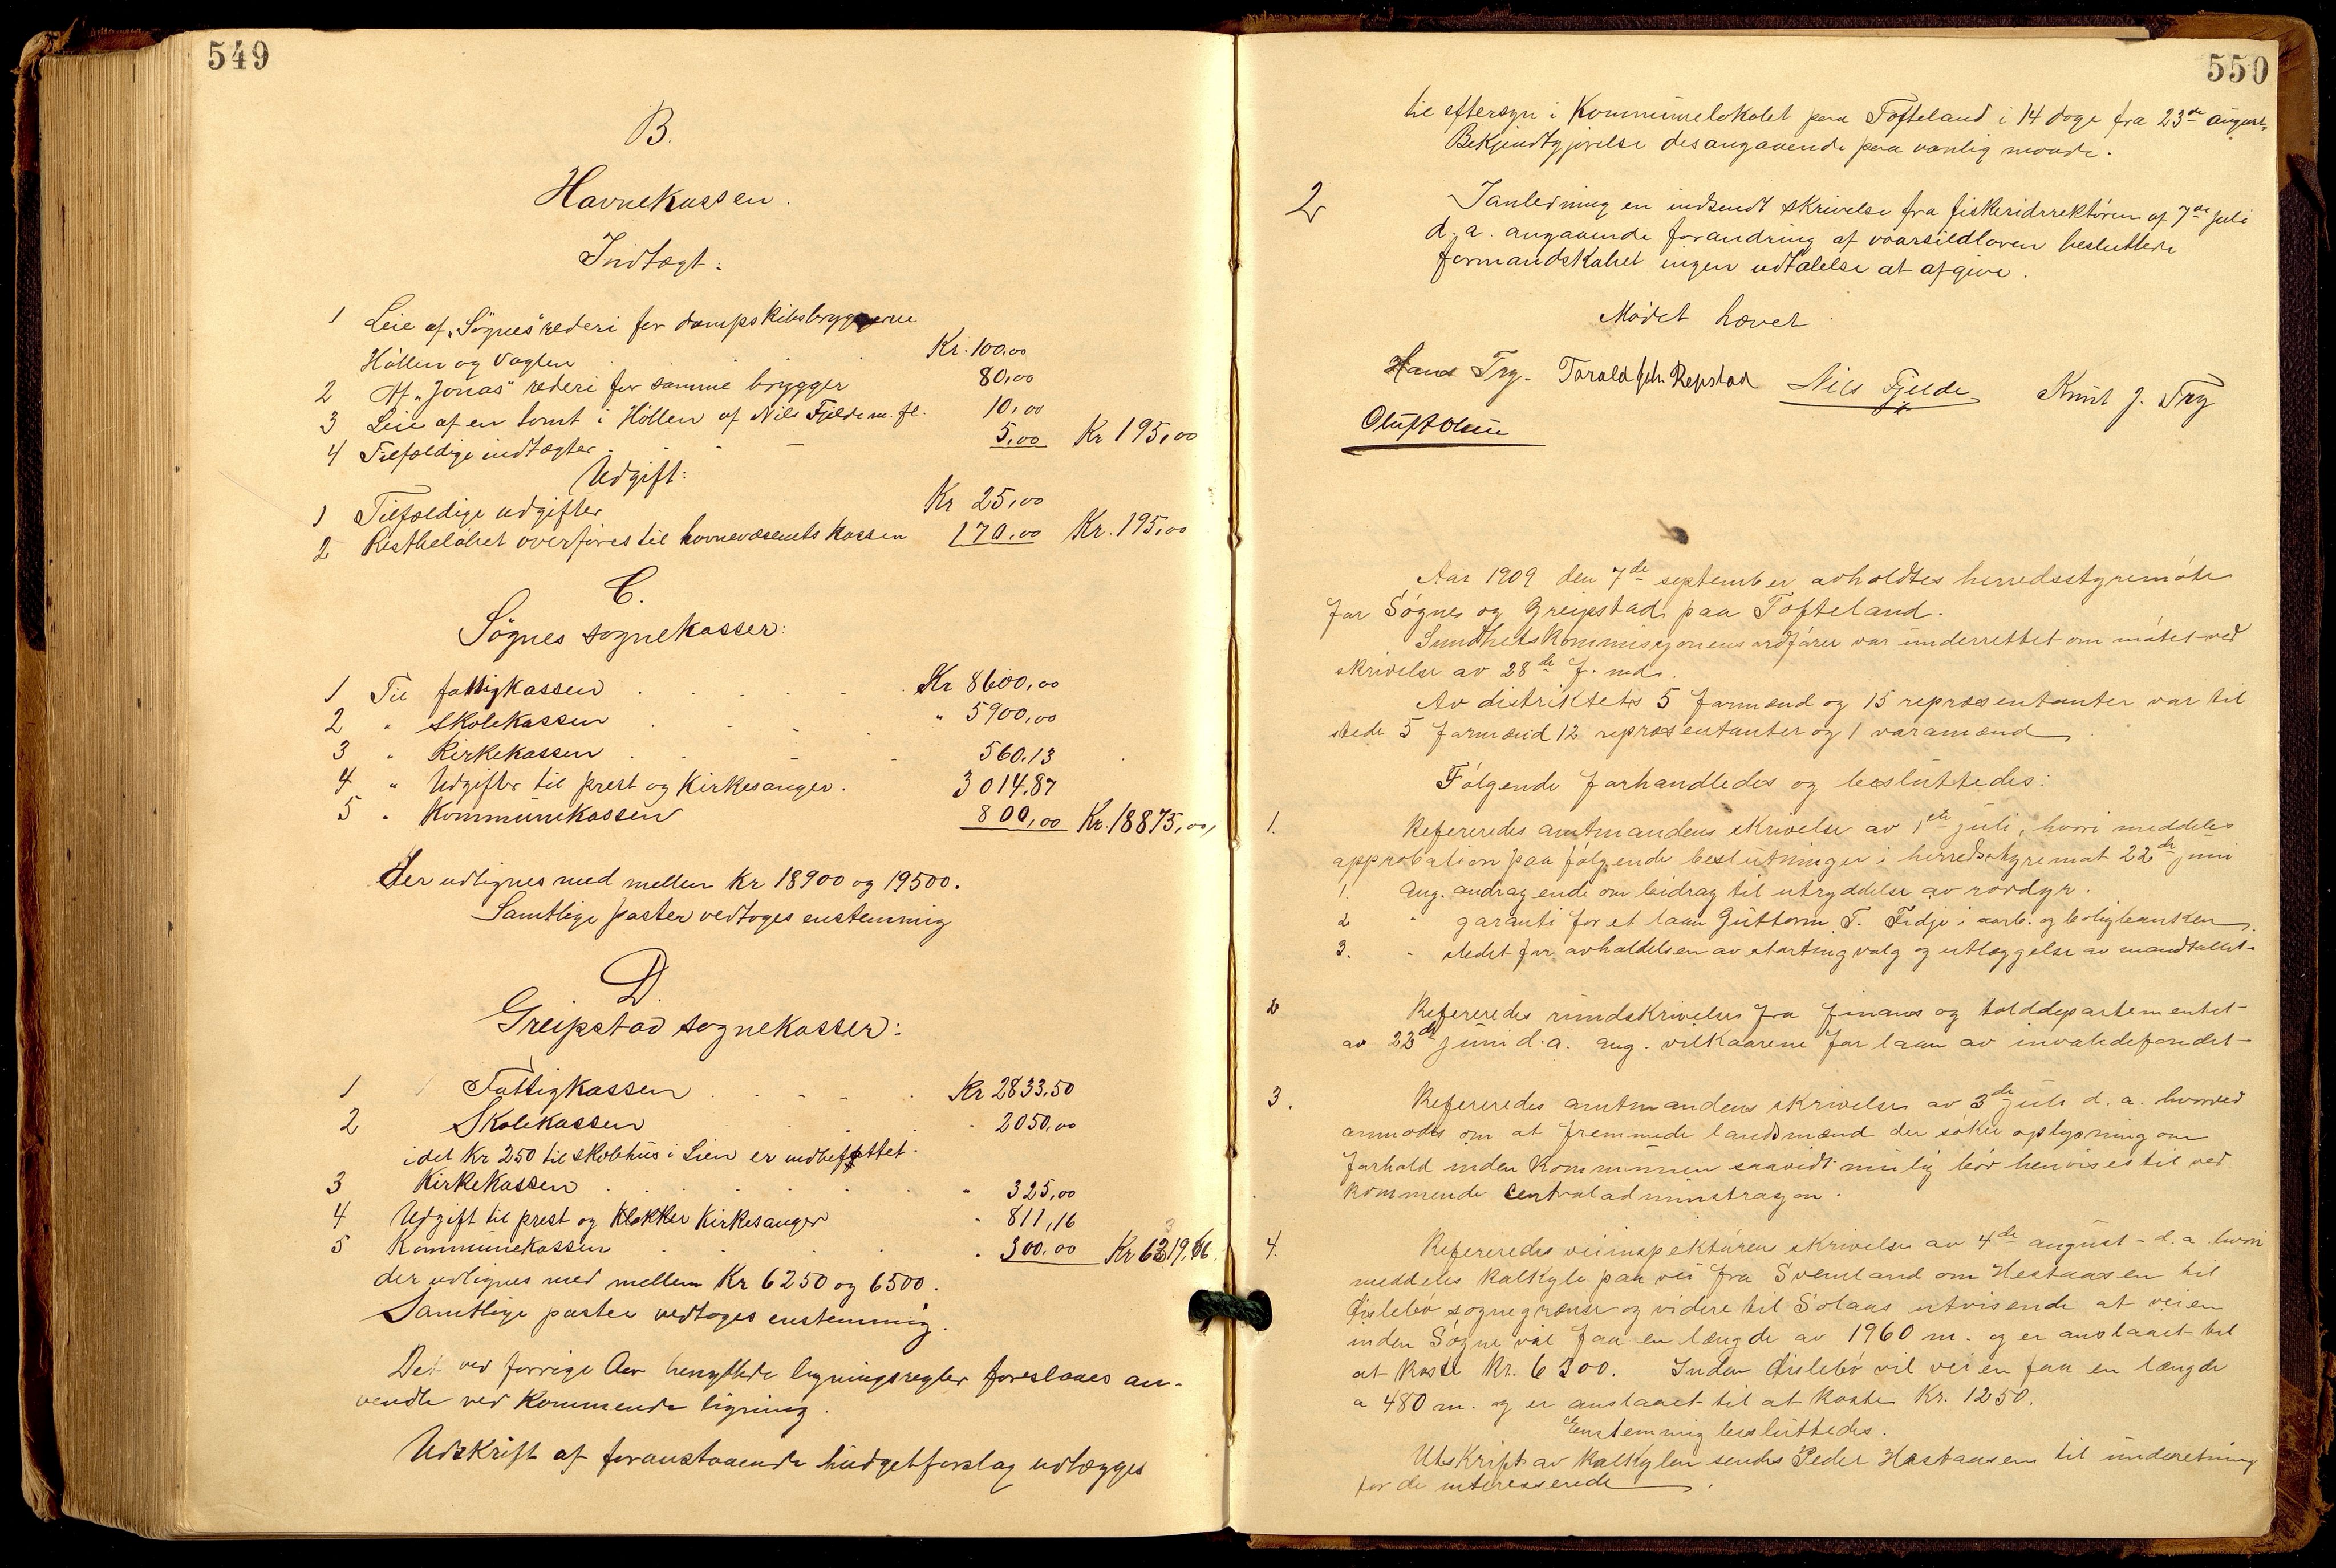 549
B.
Havnekassen.
Indtægt:
1 Leie af „Søgnes“ rederi for dampskibsbryggerne
Höllen og Vaglen Kr. 100,00
2 Af „Jonas“ rederi for samme brygger 80,00
3 Leie af en tomt i Höllen af Nils Fjelde m. fl. 10,00
4 Tilfældige indtægter 5,00 Kr 195,00
Udgift:
1 Tilfældige udgifter Kr 25,00
2 Restbeløbet overføres til havnevæsenets kassen 170,00 Kr. 195,00
C.
Søgnes sognekasser:
1 Til fattigkassen Kr 8600,00
2 " Skolekassen " 5900,00
3 " Kirkekassen 560,13
4 " Udgifter til prest og Kirkesanger. 3014,87
5 " Kommunekassen 800,00 Kr. 18875,00,
der udlignes med mellem Kr 18900 og 19500.
Samtlige poster vedtoges enstemmig
D.
Greipstad sognekasser:
1 Fattigkassen Kr 2833,50
2 Skolekassen " 2050,00
idet Kr 250 til skolehus i Lien er indbefattet.
3 Kirkekassen " 325,00
4 Udgift til prest og Klokker Kirkesanger " 811,16
5 Kommunekassen " 300,00 Kr 6319,66
der udlignes med mellem Kr 6250 og 6500.
Samtlige poster vedtoges enstemmig.
De ved forrige Aar benyttede ligningsregler foreslaaes an-
vendte ved Kommende ligning.
Udskrift af foranstaaende budgetforslag udlægges
550
til eftersyn i Kommunelokalet paa Tofteland i 14 dage fra 23de august.
Bekjendtgjørelse desangaaende paa vanlig maade.
2 Ianledning en indsendt skrivelse fra fiskeridirektøren af 7de juli
d. a. angaaende forandring af vaarsildloven besluttede
formandskabet ingen udtalelse at afgive.
Mødet hævet
Hans Try. Torald Joh. Repstad Nils Fjelde Knut J. Try
Oluf Olsen
Aar 1909 den 7de september avholdtes herredsstyremøte
for Søgne og Greipstad paa Tofteland.
Sundhetskommisjonens ordfører var underrettet om møtet ved
skrivelse av 28de f. md.
Av distriktets 5 formænd og 15 repræsentanter var til
stede 5 formænd 12 repræsentanter og 1 varamænd.
Følgende forhandledes og besluttedes:
1. Refereredes amtmandens skrivelse av 1ste juli, hvori meddeles
approbation paa følgende beslutninger i herredsstyremøt 22de juni
1. Ang. andragende om bidrag til utryddelse av rovdyr.
2 " garanti for et laan Guttorm T. Fidje i arb. og boligbanken.
3. " stedet for avholdelsen av stortingvalg og utlæggelse av mandtallet.
2 Refereredes rundskrivelse fra finans og tolddepartementet
av 22de juni d. a. ang. vilkaarene for laan av invalidefondet
3. Refereredes amtmandens skrivelse av 3de juli d. a. hvorved
anmodes om at fremmede landsmænd der søker oplysning om
forhold inden Kommunen saavidt mulig bør henvises til ved
kommende centraladministrasjon.
4. Refereredes veiinspektørens skrivelse av 4de august d. a. hvori
meddeles kalkyle paa vei fra Svenland om Hestaasen til
Øislebø sognegrænse og videre til Solaas utvisende at veien
inden Søgne vil faa en længde av 1960 m. og er anslaaet til
at koste Kr. 6300. Inden Øislebø vil veien faa en længde
a 480 m. og er anslaaet til at koste Kr. 1250.
Enstemmig besluttedes.
Utskrift av Kalkylen sendes Peder Hestaasen til underretning
for de interesserede.